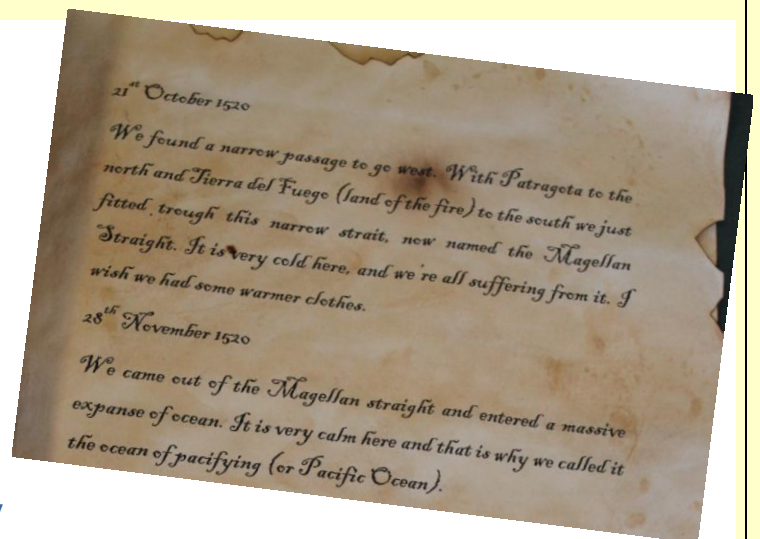 21st October 1520
We found a narrow passage to go west. With Patragota to the
north and Tierra del Fuego (land of the fire) to the south we just
fitted trough this narrow strait, now named the Magellan
Straight. It is very cold here, and we're all suffering from it. I
wish we had some warmer clothes.
28th November 1520
We came out of the Magellan straight and entered a massive
expanse of ocean. It is very calm here and that is why we called it
the ocean of pacifying (or Pacific Ocean).